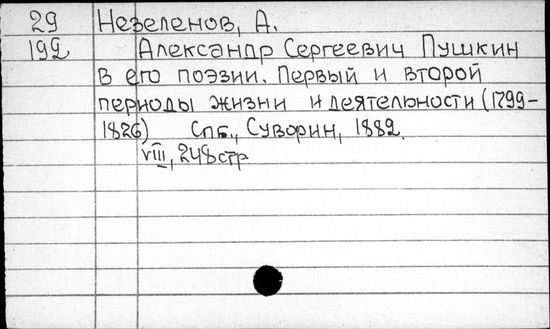 29 Незеленов, А.
192 Александр Сергеевич Пушкин
в его поэзии. Первый и второй
периоды жизни и деятельности (1799-
1826) Спб., Суворин, 1882.
VIII, 248 стр